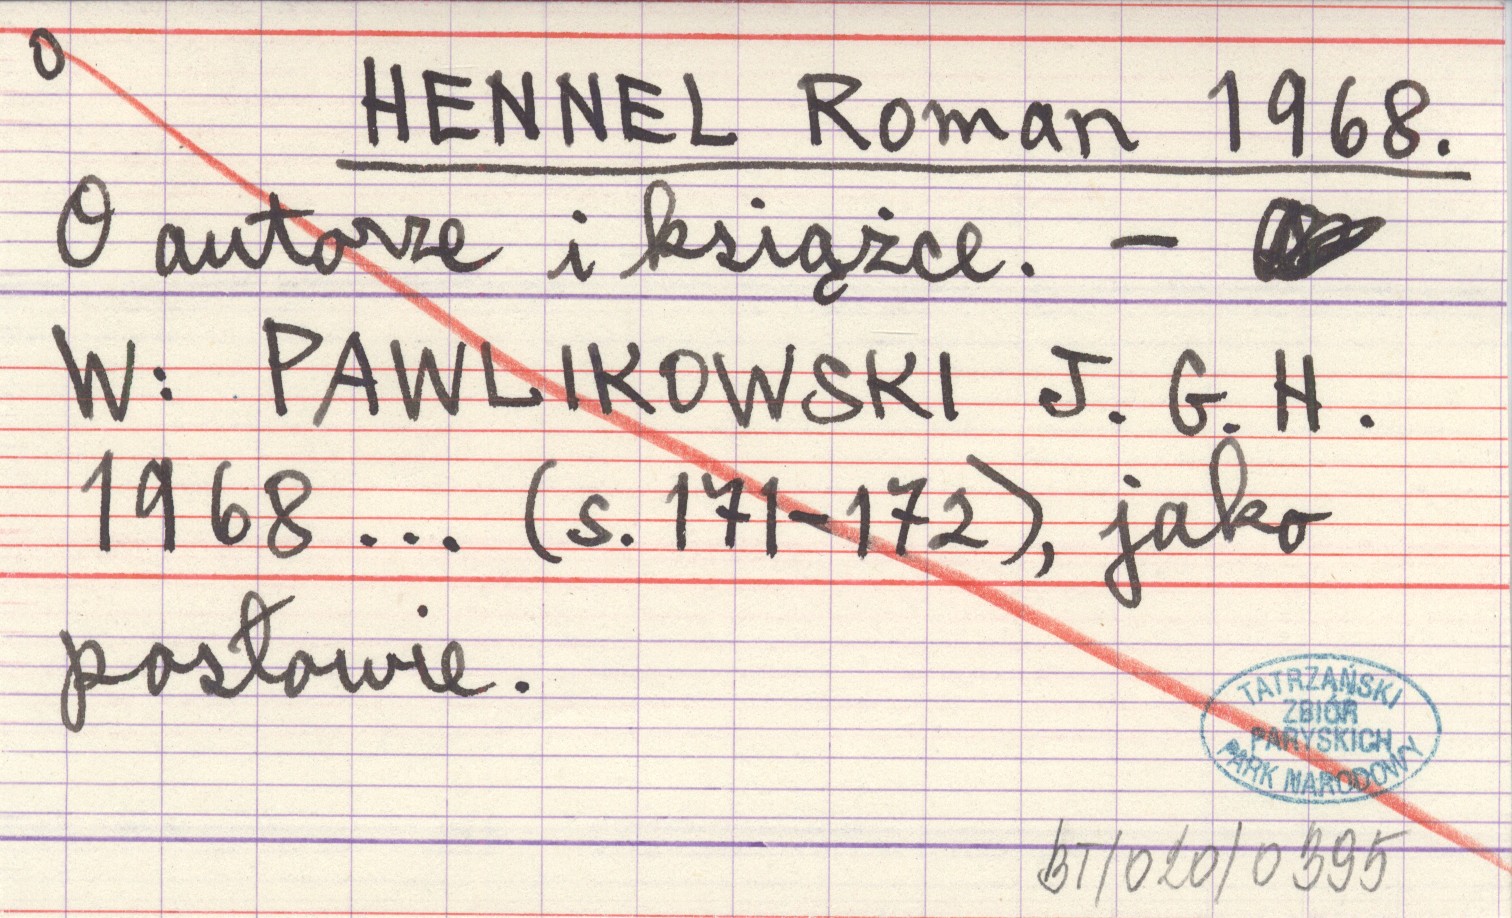 O
HENNEL Roman 1968.
O autorze i książce. –
W: PAWLIKOWSKI J. G. H.
1968 ... (s. 171-172), jako
posłowie.
TATRZAŃSKI
ZBIÓR
PARYSKICH
PARK NARODOWY
BT/020/0395